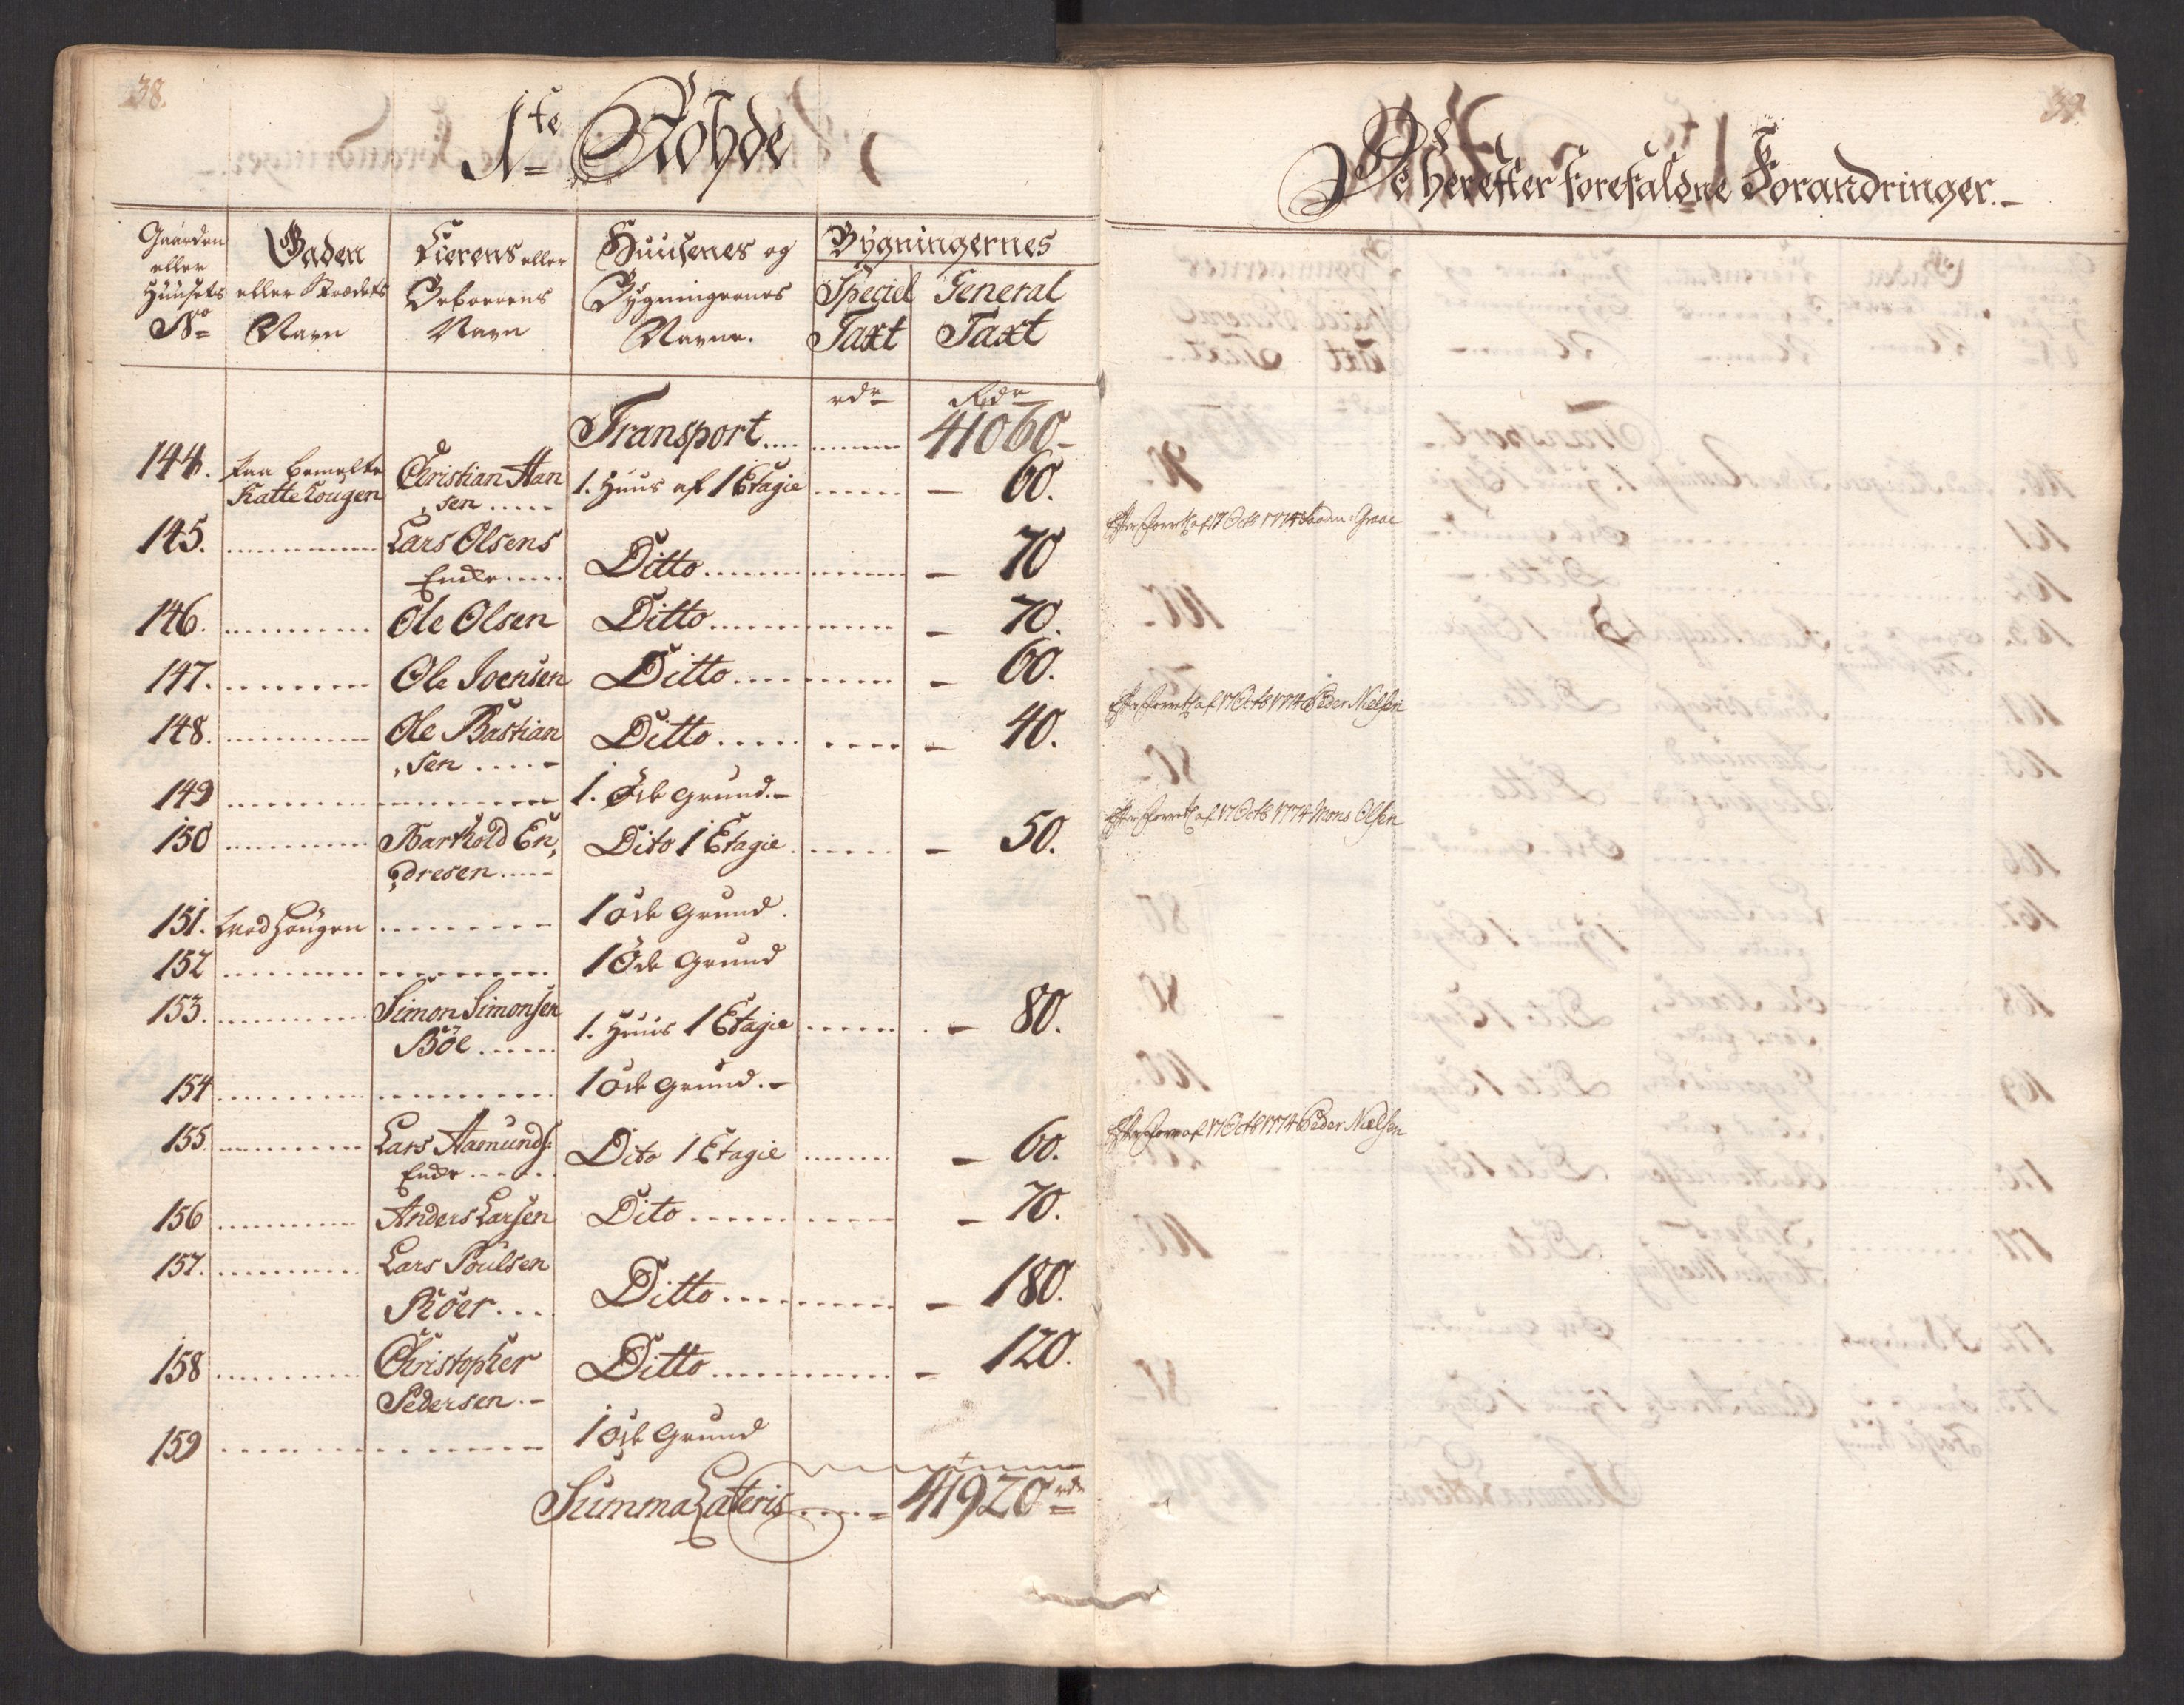 38.
1te Rohde
Gaarden eller Huusets No
Gaden eller Strædets Navn
Eierens eller Beboerens Navn
Huusenes og Bygningernes Navne.
Bygningernes
Speciel Taxt
General Taxt
rdr Rdr
Transport..... 41060.-
144. Paa bemelte Christian Han 1. Huus af 1 Etagie - 60.
Kattehougen sen .....
145. Lars Olsens Ditto - 70
Enke
146. Ole Olsen Ditto - 70.
147. Ole Joensen Ditto - 60.
148. Ole Bastian Ditto - 40.
sen
149 1. Öde Grund.-
150 Barthold En, Dito 1 Etagie - 50.
dresen
151. Hougen 1 öde Grund.
152 1 Öde Grund
153. Simon Simonsen 1. Huus 1 Etagie - 80.
Böe
154 1 öde Grund.-
155. Lars Aamunds: Dito 1 Etagie - 60.
Enke
156 Anders Larsen Dito - 70.
157. Lars Poulsen Ditto - 180.
158 Christopher Ditto - 120.
Pedersen.-
159 1 öde Grund
Summa Lateris 41920 rdr
39.
De herefter forefaldne Forandringer.-
Efter Forretn af 17 Octb 1774 Graae
Efter Forretn af 17 Octb 1774 Peder Nielsen
Efter Forretn af 17 Octb 1774 Mons Olsen
Efter Forre af 17 Octb 1774 Peder Nielsen